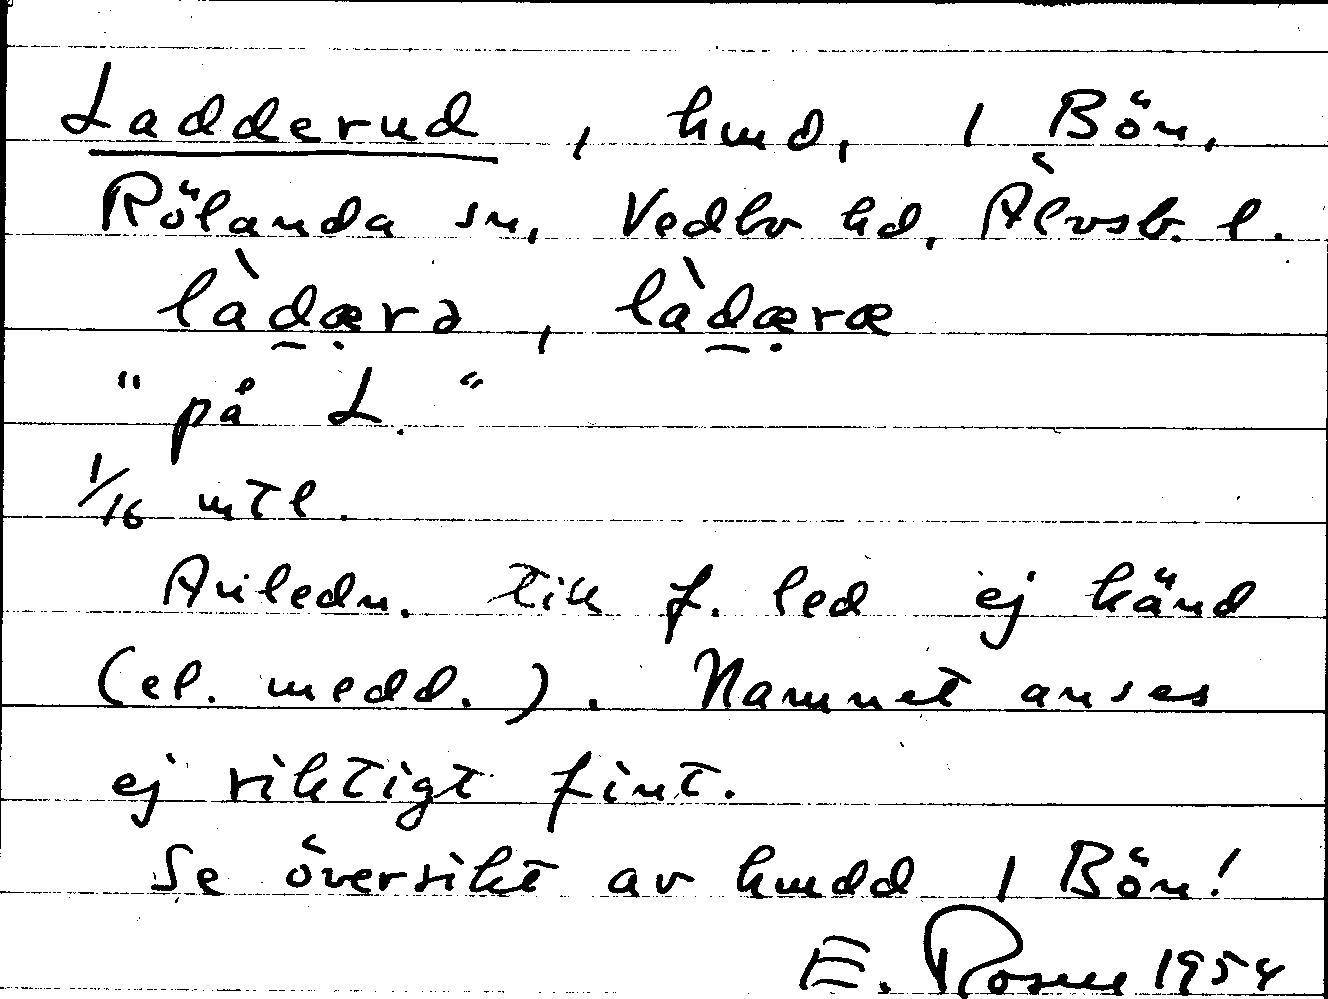 Ladderud, hmd, 1 Bön,
Rölanda sn, Vedbo hd, Älvsb. l.
là̱dæ̣rə, là̱dæ̣ræ
"på L."
1/16 mtl.
Anledn. till f. led ej känd
(el. medd.). Namnet anses
ej riktigt fint.
Se översikt av hmdd 1 Bön!
E. Rosell 1954